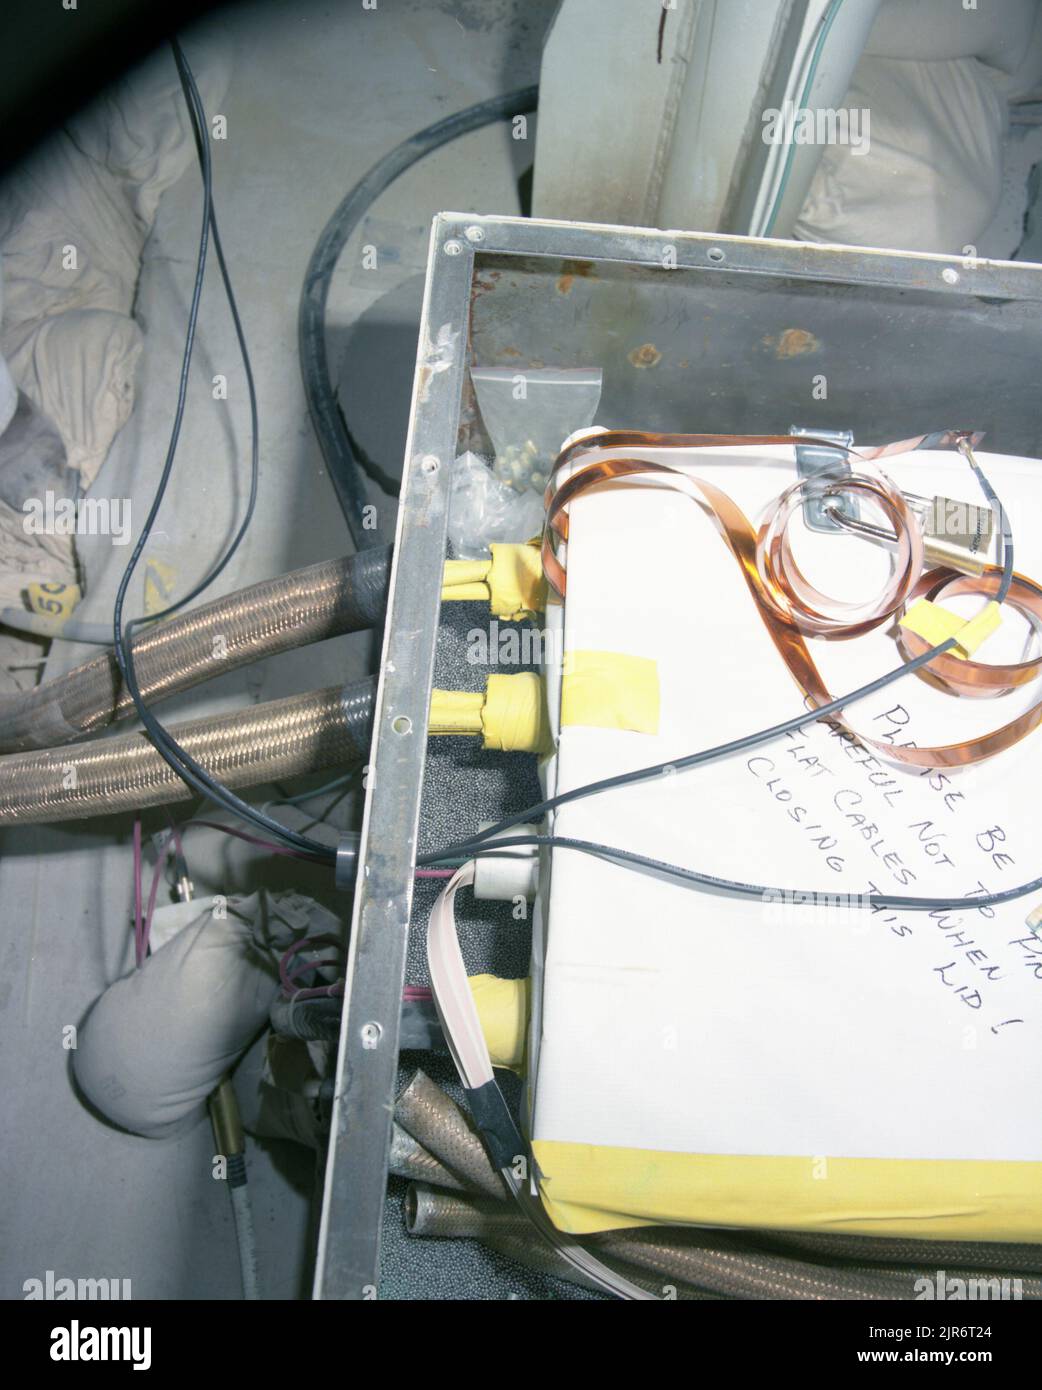 PLEASE BE
CAREFUL NOT TO PIN
FLAT CABLES WHEN
CLOSING THIS LID!
50
alamy
Image ID: 2JR6T24
www.alamy.com